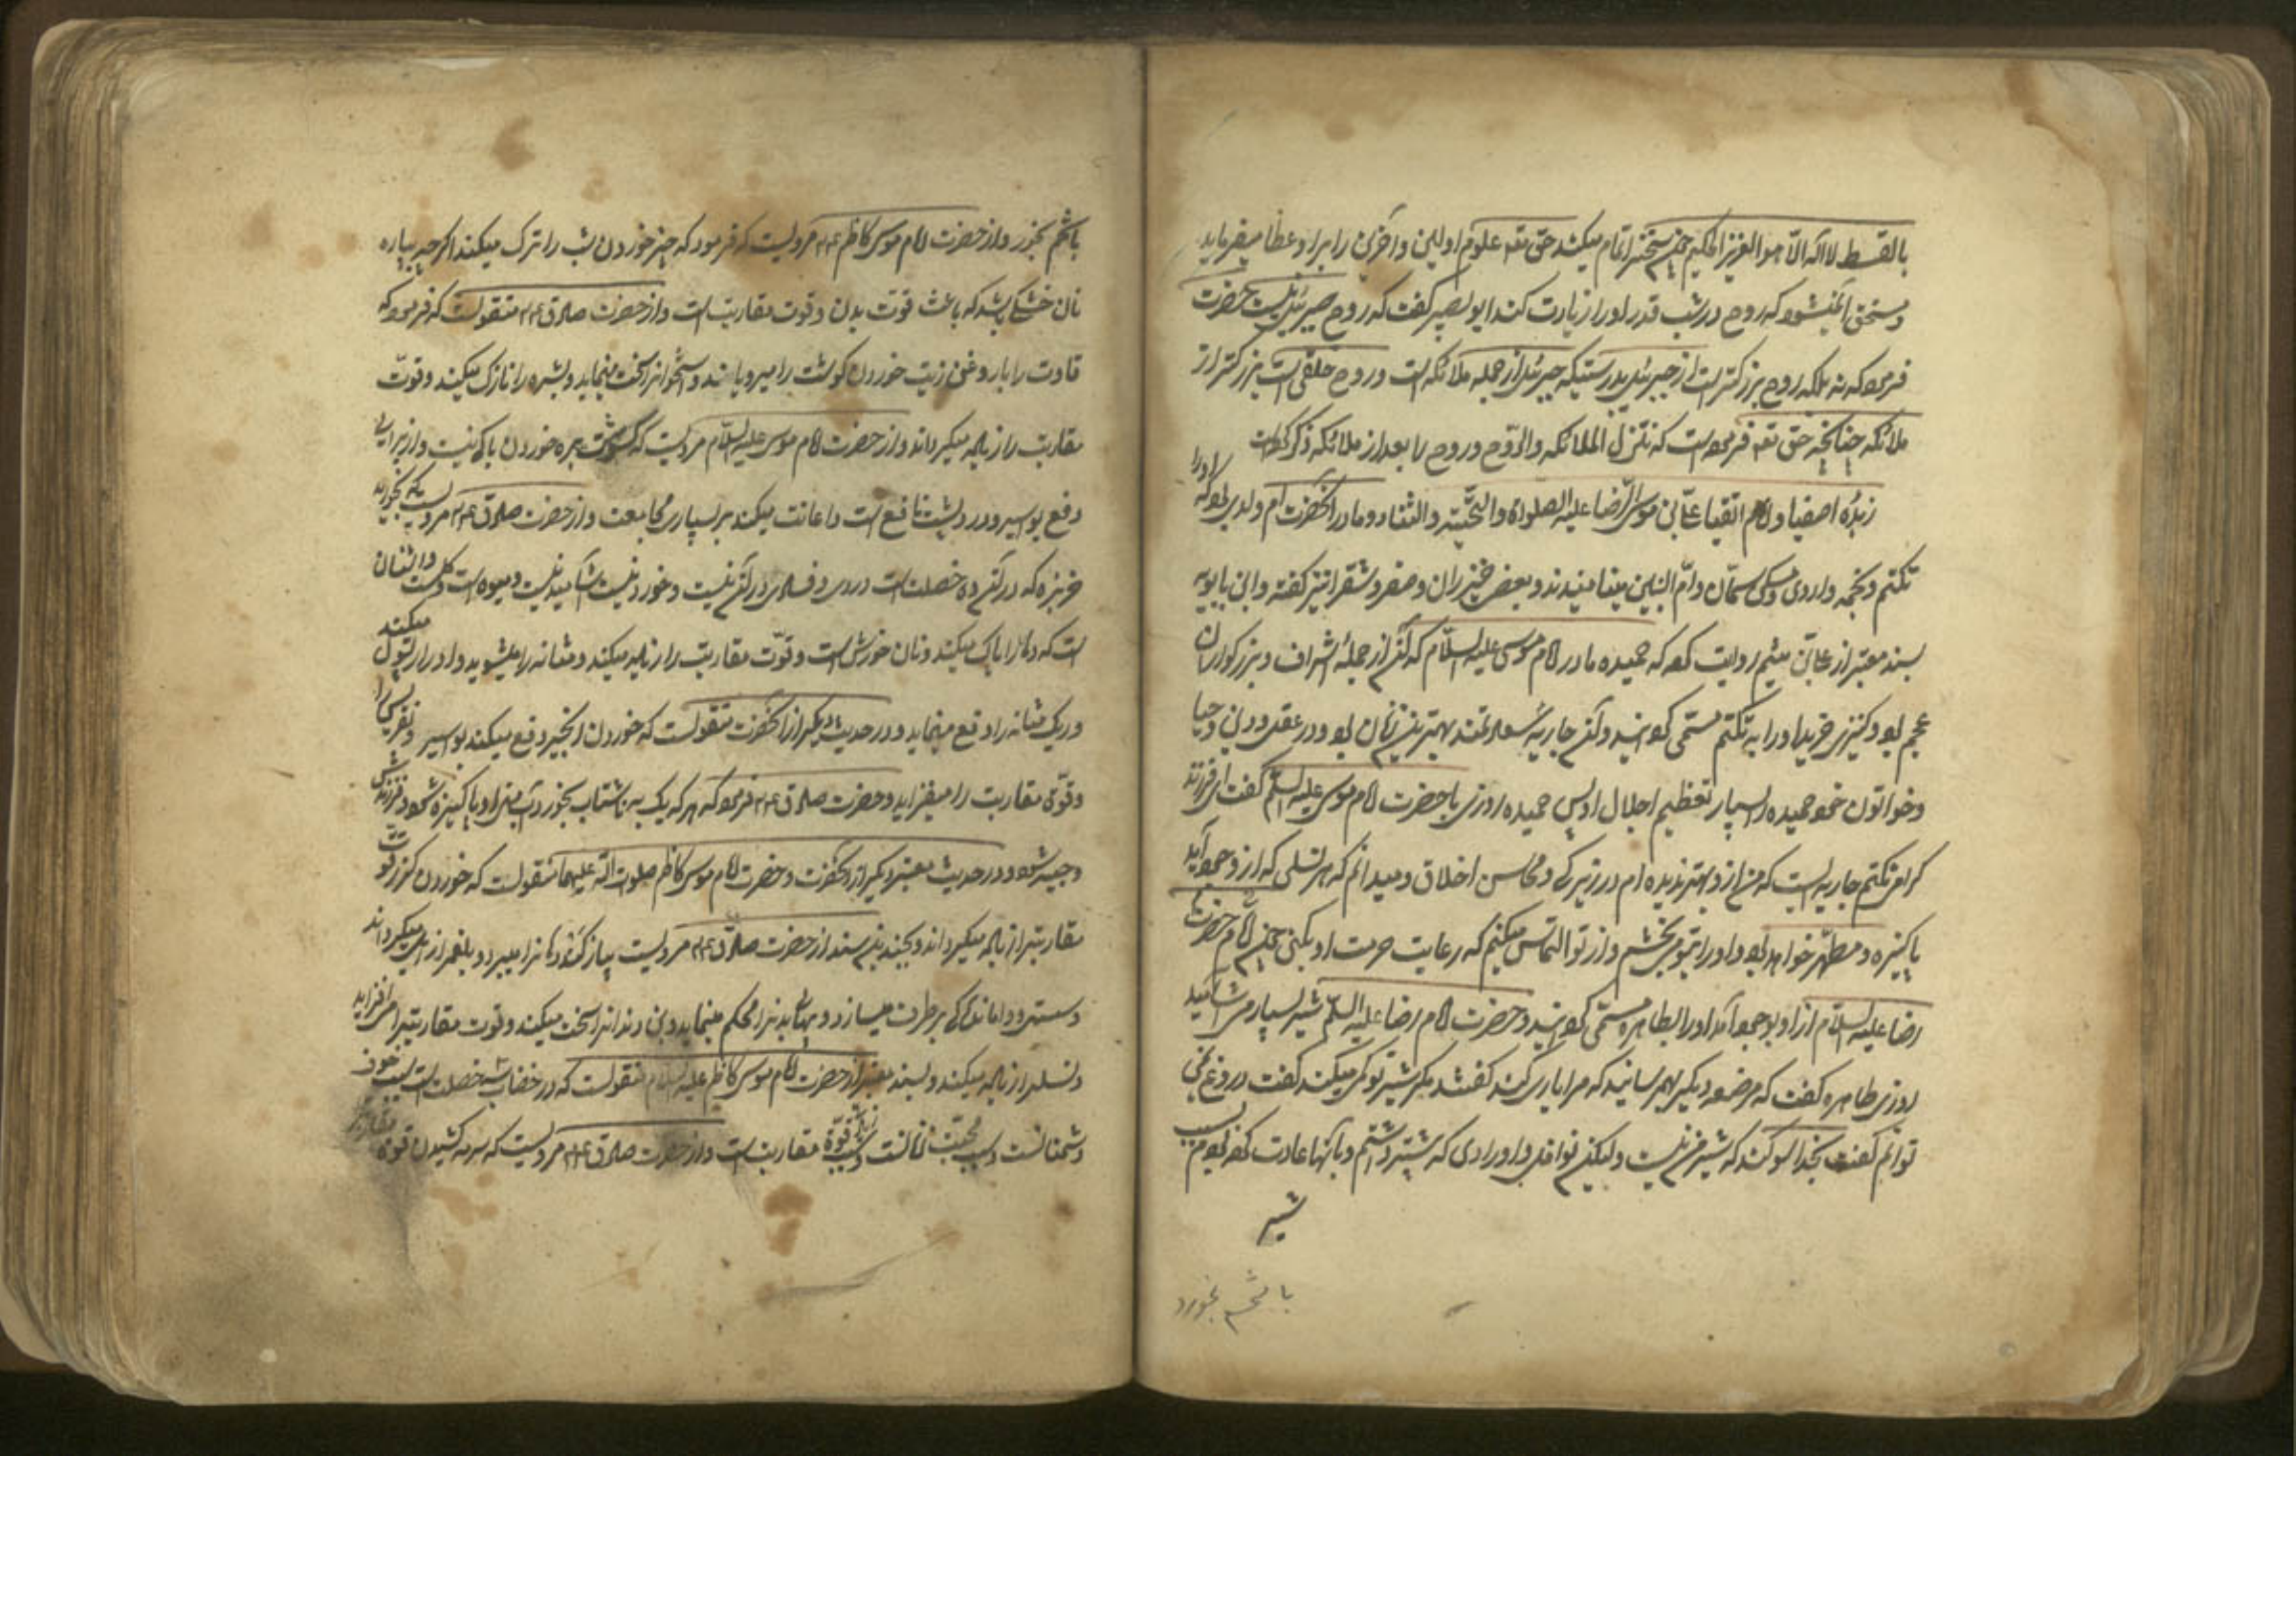 بالقسط لا اله الا هو العزیز الحکیم چون سخن را تمام میکند حق تعه علوم اولین و آخرین را براو عطا میفرماید
و مستحق آن میشود که روح در شب قدر او را زیارت کند ابو بصیر گفت که روح جبرئیل نیست حضرت
فرمود که نه بلکه روح بزرکتر است از جبرئیل بدرستیکه جبرئیل از جمله ملائکه است و روح خلقی است بزرکتر از
ملائکه چنانچه حق تعه فرموده است که تنزل الملائکه والروح و روح را بعد از ملائکه ذکر کرده است
زبدهٔ اصفیا و امام اتقیا علی بن موسی الرضا علیه الصلواة والتحیته والثناء و مادر آنحضرت ام ولدی بود که او را
تکتم و نجمه و اروی و سکن و سمان و ام البنین مینامیدند و بعضی خیزران و صقر و شقرا نیز کفته و ابن بابویه
بسند معتبر از علی بن میثم روایت کرده که حمیده مادر امام موسی علیه السلام که آن از جملهٔ اشراف و بزرکواران
عجم بود کنیزی خرید او را به تکتم مسمی کردانید و آن جاریهٔ سعادتمند بهترین زنان بود در عقل و دین و حیا
و خواتون خود حمیده را بسیار تعظیم اجلال او پس حمیده روزی با حضرت امام موسی علیه السلام کفت ای فرزند
کرامی تکتم جاریه است که من از و بهتر ندیده ام در زیرکی و محاسن اخلاق و میدانم که هر نسلی که از و بوجود آید
پاکیزه و مطهر خواهد بود و او را بتو می بخشم و از تو التماس میکنم که رعایت حرمت او بکنی چون امام حضرت
رضا علیه السلام از او بوجود آمد او را بطاهره مسمی کردانید و حضرت امام رضا علیه السلام شیر بسیار می آشامید
روزی طاهره کفت که مرضعه دیکر بهم رسانید که مرا یاری کند کفتند مکر شیر تو کمی میکند کفت دروغ نمی
توانم کفت بخدا سوکند که شیر من کم نیست ولیکن نوافل و اورادی که پیشتر داشتم و بآنها عادت کرده بودم بسبب
شیر
با شحم بخورد
با شحم بخورد و از حضرت امام موسی کاظم ع۴م مرویست که فرمود که چیز خوردن شب را ترک میکنید اکر چه بپاره
نان خشکی باشد که باعث قوت بدن و قوت مقاربت است و از حضرت صادق ع۴م منقولست که فرمود که
قاوت را با روغن زیت خوردن کوشت را میرویاند و استخوانرا سخت مینماید و بشره را نازک میکند و قوت
مقاربت را زیاده میکرداند و از حضرت امام موسی علیه السلام مرویست که کوشت بره خوردن باکی نیست و از برای
دفع بواسیر و درد پشت نافع است و اعانت میکند بر بسیاری مجامعت و از حضرت صادق ع۴م مرویست که بخورید
خربزه که در آن ده خصلت است دردی و فسادی در آن نیست و خوردنیست و آشامیدنیست و میوه است و کلست و اشنان
است که دهانرا پاک میکند و نان خورش است و قوت مقاربت را زیاده میکند و مثانه را میشوید و ادرار بول میکند
و ریک مثانه را دفع مینماید و در حدیث دیکر از آنحضرت منقولست که خوردن انجیر دفع میکند بواسیر و نقرس را
و قوة مقاربت را میفزاید و حضرت صادق ع۴م فرمود که هر که یک به ناشتاب بخورد آب منی او پاکیزه شود و فرزندش
وجیه شود و در حدیث معتبر دیکر از آنحضرت و حضرت امام موسی کاظم صلوات الله علیهما منقولست که خوردن کزر قوت
مقاربترا زیاده میکرداند و بچندین سند از حضرت صادق ع۴م مرویست پیاز کند دهانرا میبرد و بلغم را زایل میکرداند
و سستی و واماندکی برطرف میسازد و پیهای بدنرا محکم مینماید و بن دندانرا سخت میکند و قوت مقاربترا می افزاید
و نسل را زیاده میکند و بسند معتبر از حضرت امام موسی کاظم علیه السلام منقولست که در خضاب سه خصلت است سبب خوف
دشمنانست و سبب محبت زنانست و سبب زیادتی قوة مقاربت است و از حضرت صادق ع۴م مرویست که سرمه کشیدن قوة مقاربت